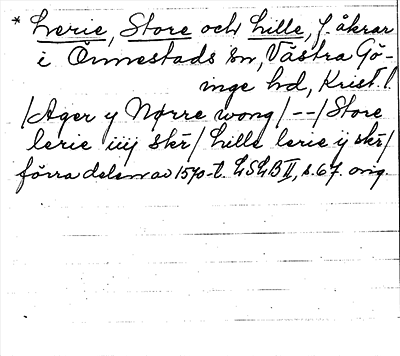 * Lerie, Store och Lille, f. åkrar
i Önnestads sn, Västra Gö-
inge hd, Krist. l.
/Ager y Nørre wong/--/Store
lerie iiij skr/ Lille lerie ij skr/
förra delen av 1570-t. LSLB II, s. 67. orig.